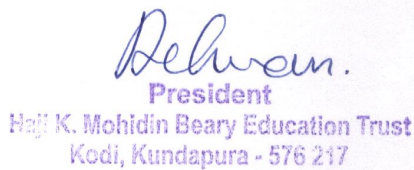 President
Haji K. Mohidin Beary Education Trust
Kodi, Kundapura - 576 217